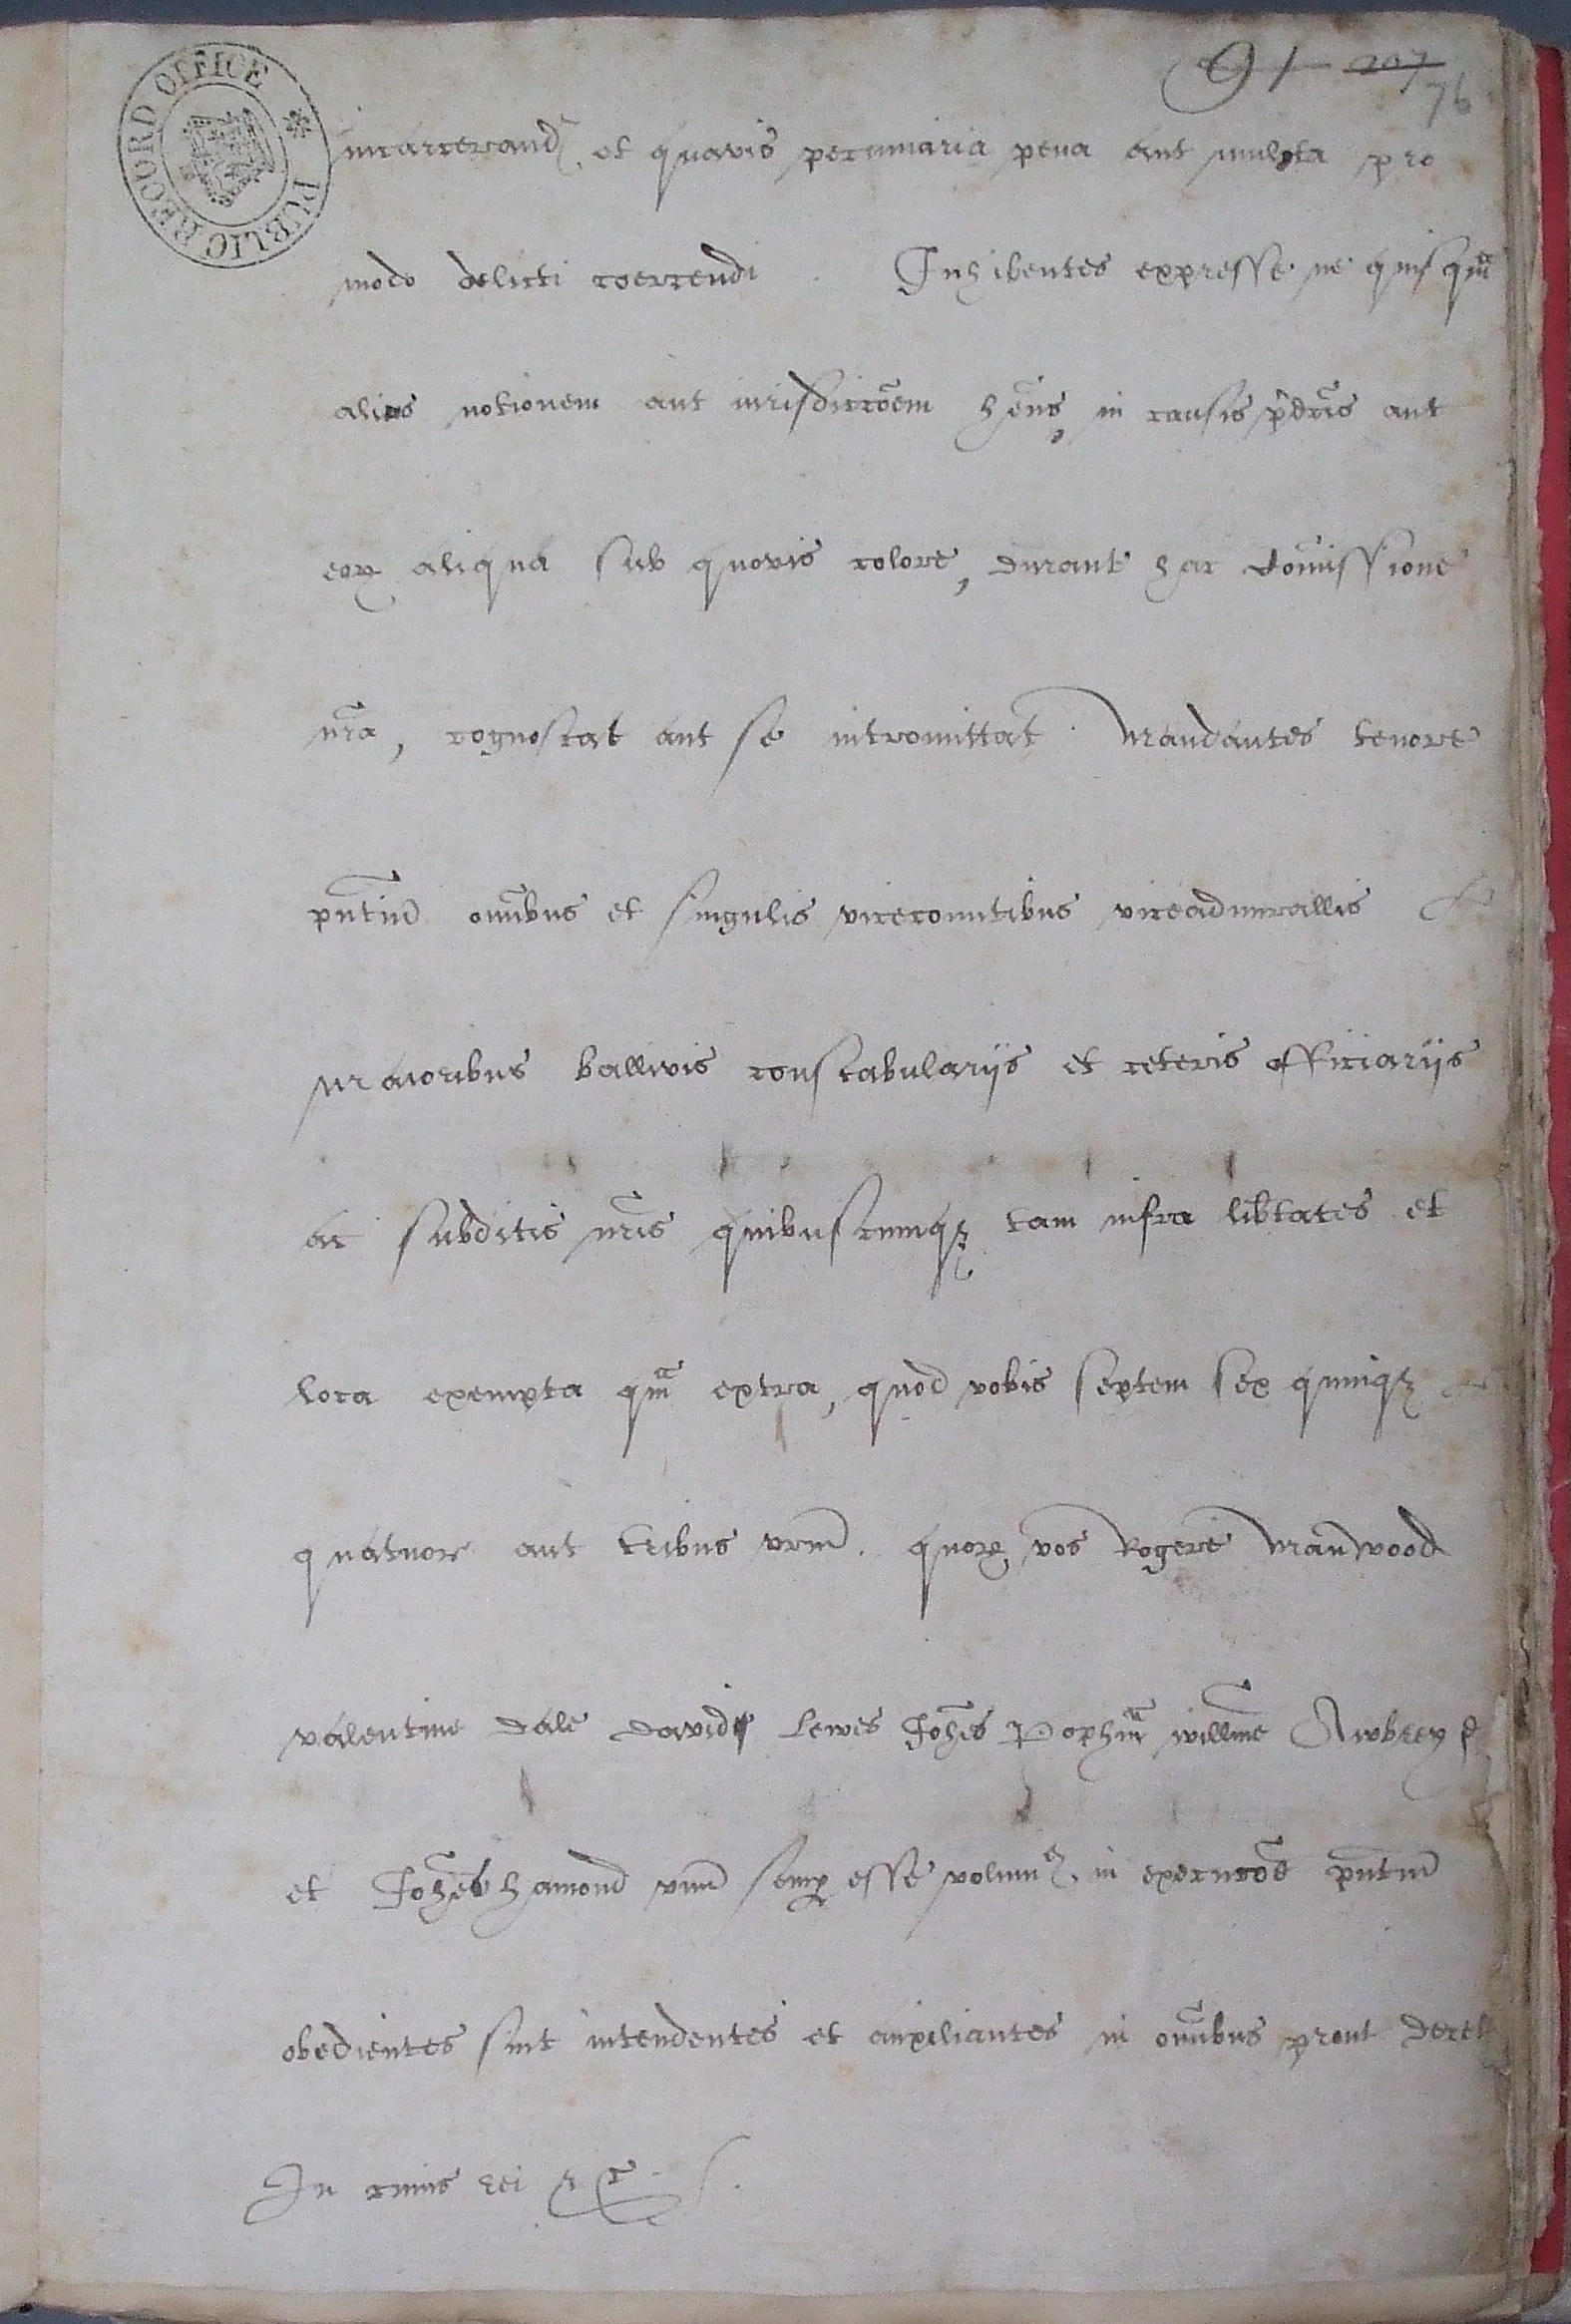 PUBLIC RECORD OFFICE
91 207
76
incarcerand et quavis pecuniaria pena aut mulcta pro
modo delicti coercendi . Inhibentes expresse ne quisqm̃
alius notionem aut iurisdiccõem hẽns, in causis p̃dcĩs aut
eoꝝ aliqua sub quovis colore, durant hac com̃issione
nr̃a, cognoscat aut se intromittat . Mandantes tenore
pñtiũ om̃ibus et singulis vicecomitibus viceadmirallis &
Maioribus ballivis constabulariis et ceteris officiariis
ac subditis nr̃is quibuscumqꝫ tam infra lib̃tates et
loca exempta qm̃ extra, quod vobis septem sex quinqꝫ
quatuor aut tribus vrm̃ . quoꝝ vos Rogere Manwood
valentine dale david Lewes Joh̃es Pophm̃ willm̃e Awbrey
et Joh̃es hamond vnũ semꝑ esse volum9 in execucõe pñtiũ
obedientes sint intendentes et auxiliantes in om̃ibus prout decet
In cuius rei &c̃ .